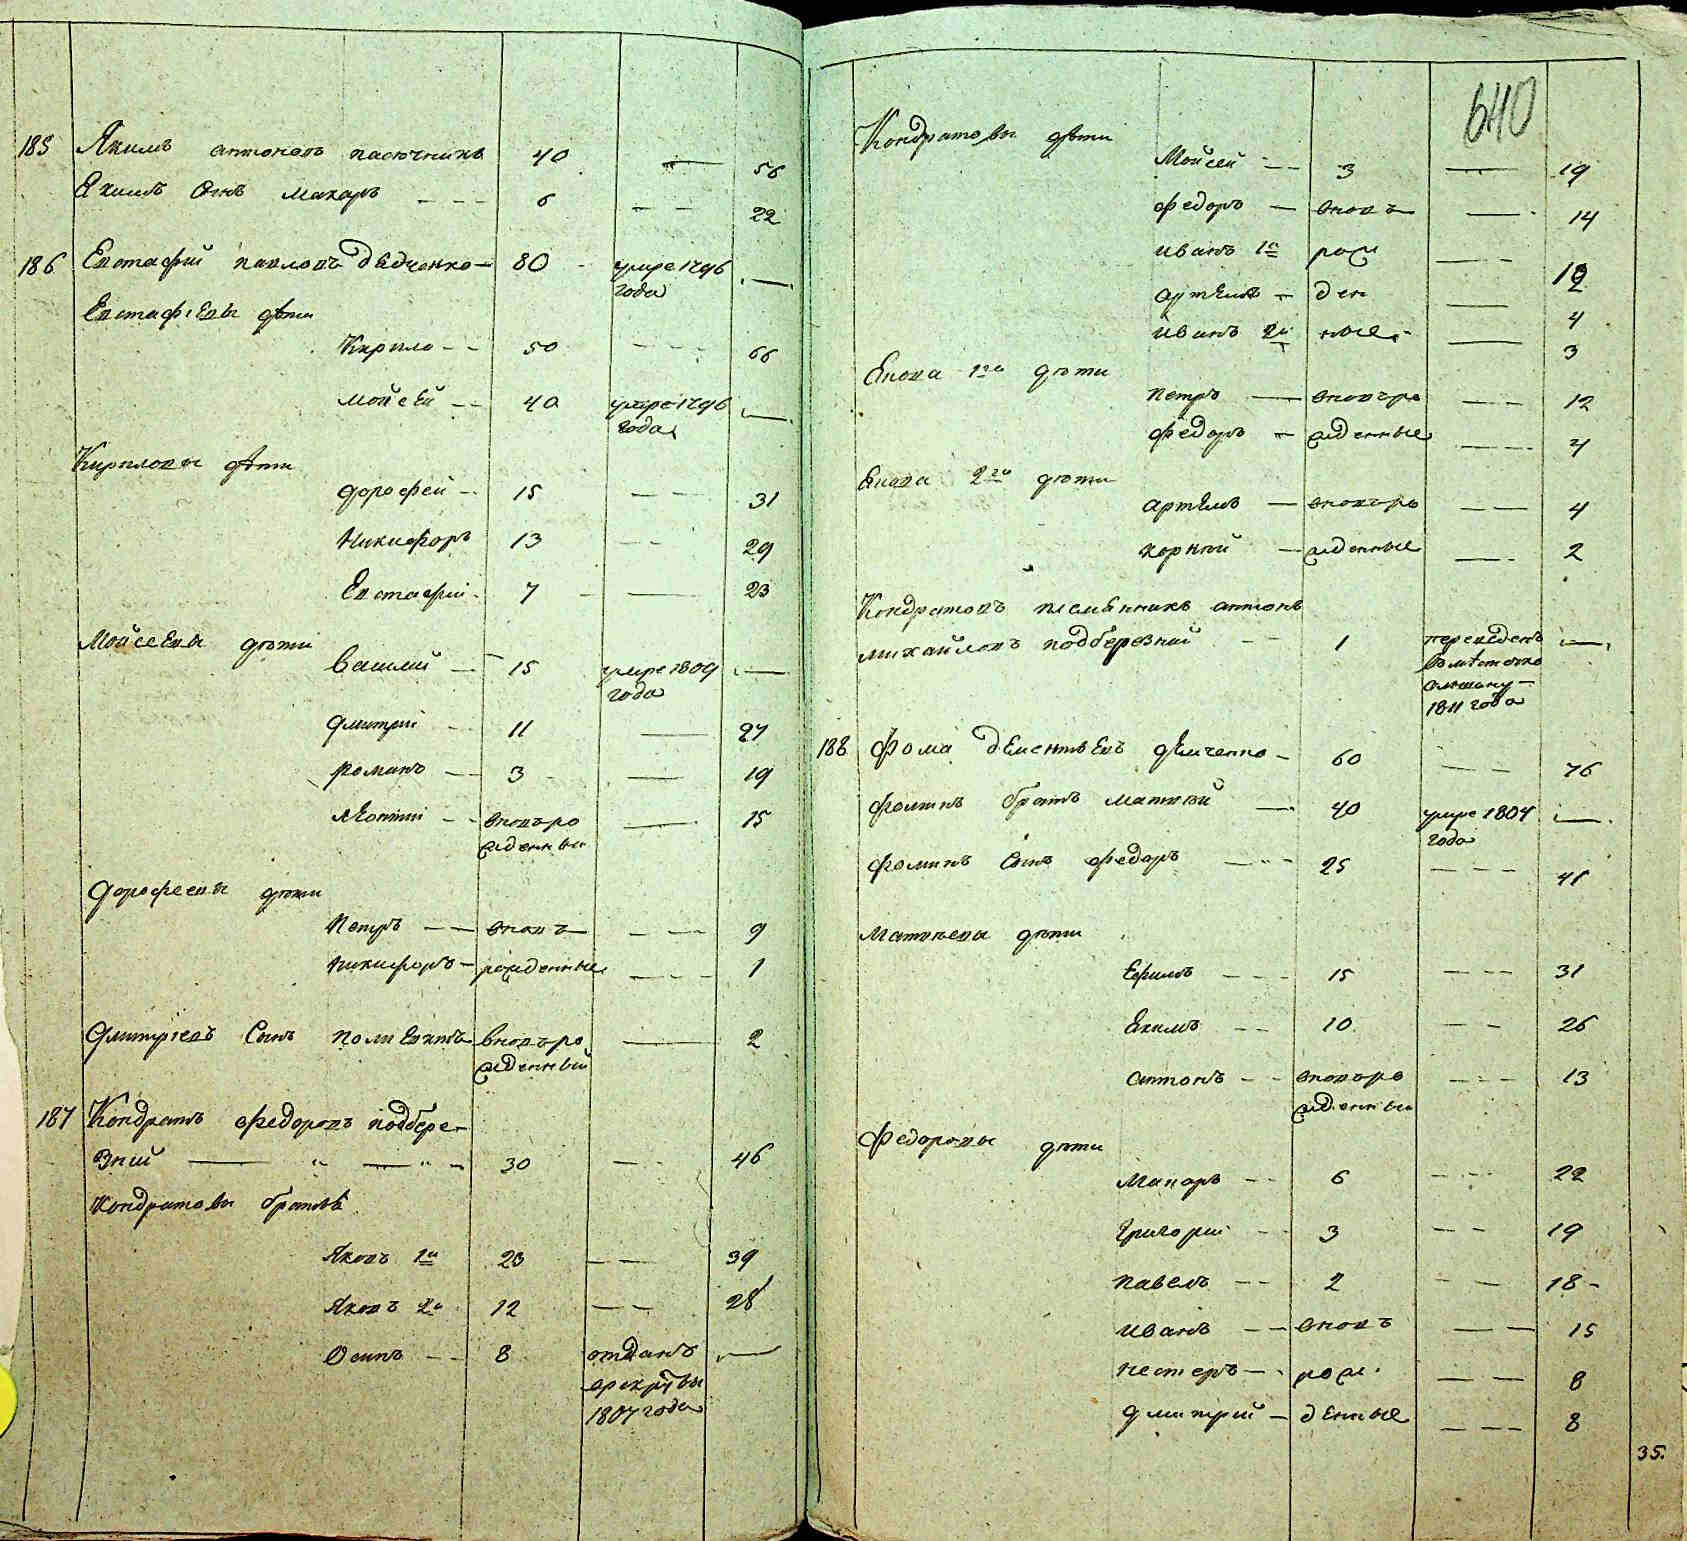 185 Якимъ антоновъ пасечникъ 40 — 56
Якимъ Сынъ макаръ 6 — 22
186 Евстафий павловъ дѣдченко 80 умре 1796 —
года
Евстафіевы дѣти
Кирило 50 — 66
мойсей 40 умре 1796 —
года
Кириловы дѣти
дорофей 15 — 31
Никифоръ 13 — 29
Евстафій 7 — 23
Мойсеевы дѣти
василий 15 умре 1809 —
года
дмитрій 11 — 27
романъ 3 — 19
вновьро — 15
жденный
дорофеевы дѣти
Петръ вновь — 9
никифоръ рожденные — 1
дмитріевъ Сынъ полиевктъ вновьро — 2
жденный
187 Кондратъ федоровъ подбере-
зний 30 — 46
Кондратовы братья
Яковъ 1й 23 — 39
Яковъ 2й 12 — 28
Осипъ 8 отданъ —
врекруты
1807 года
640
Кондратовы дѣти
Мойсей 3 — 19
федоръ вновь — 14
иванъ 1й рож — 12
артемъ ден — 4
иванъ 2й ные — 3
Якова 1го дѣти
петръ вновьро — 12
федоръ жденные — 4
Якова 2го дѣти
артемъ вновьро — 4
корній жденные — 2
Кондратовъ племѣнникъ антонъ
михайловъ подберезний 1 переведенъ —
вмѣстечко
ольшану
1811 года
188 фома дементьевъ демченко 60 — 76
фоминъ братъ матвѣй 40 умре 1804 —
года
фоминъ Сынъ федоръ 25 — 41
Матвѣевы дѣти
Ефимъ 15 — 31
Екимъ 10 — 26
антонъ вновьро — 13
жденный
федоровы дѣти
Макаръ 6 — 22
григорій 3 — 19
павелъ 2 — 18
иванъ вновь — 15
нестеръ рож — 8
дмитрий денные — 8
35.